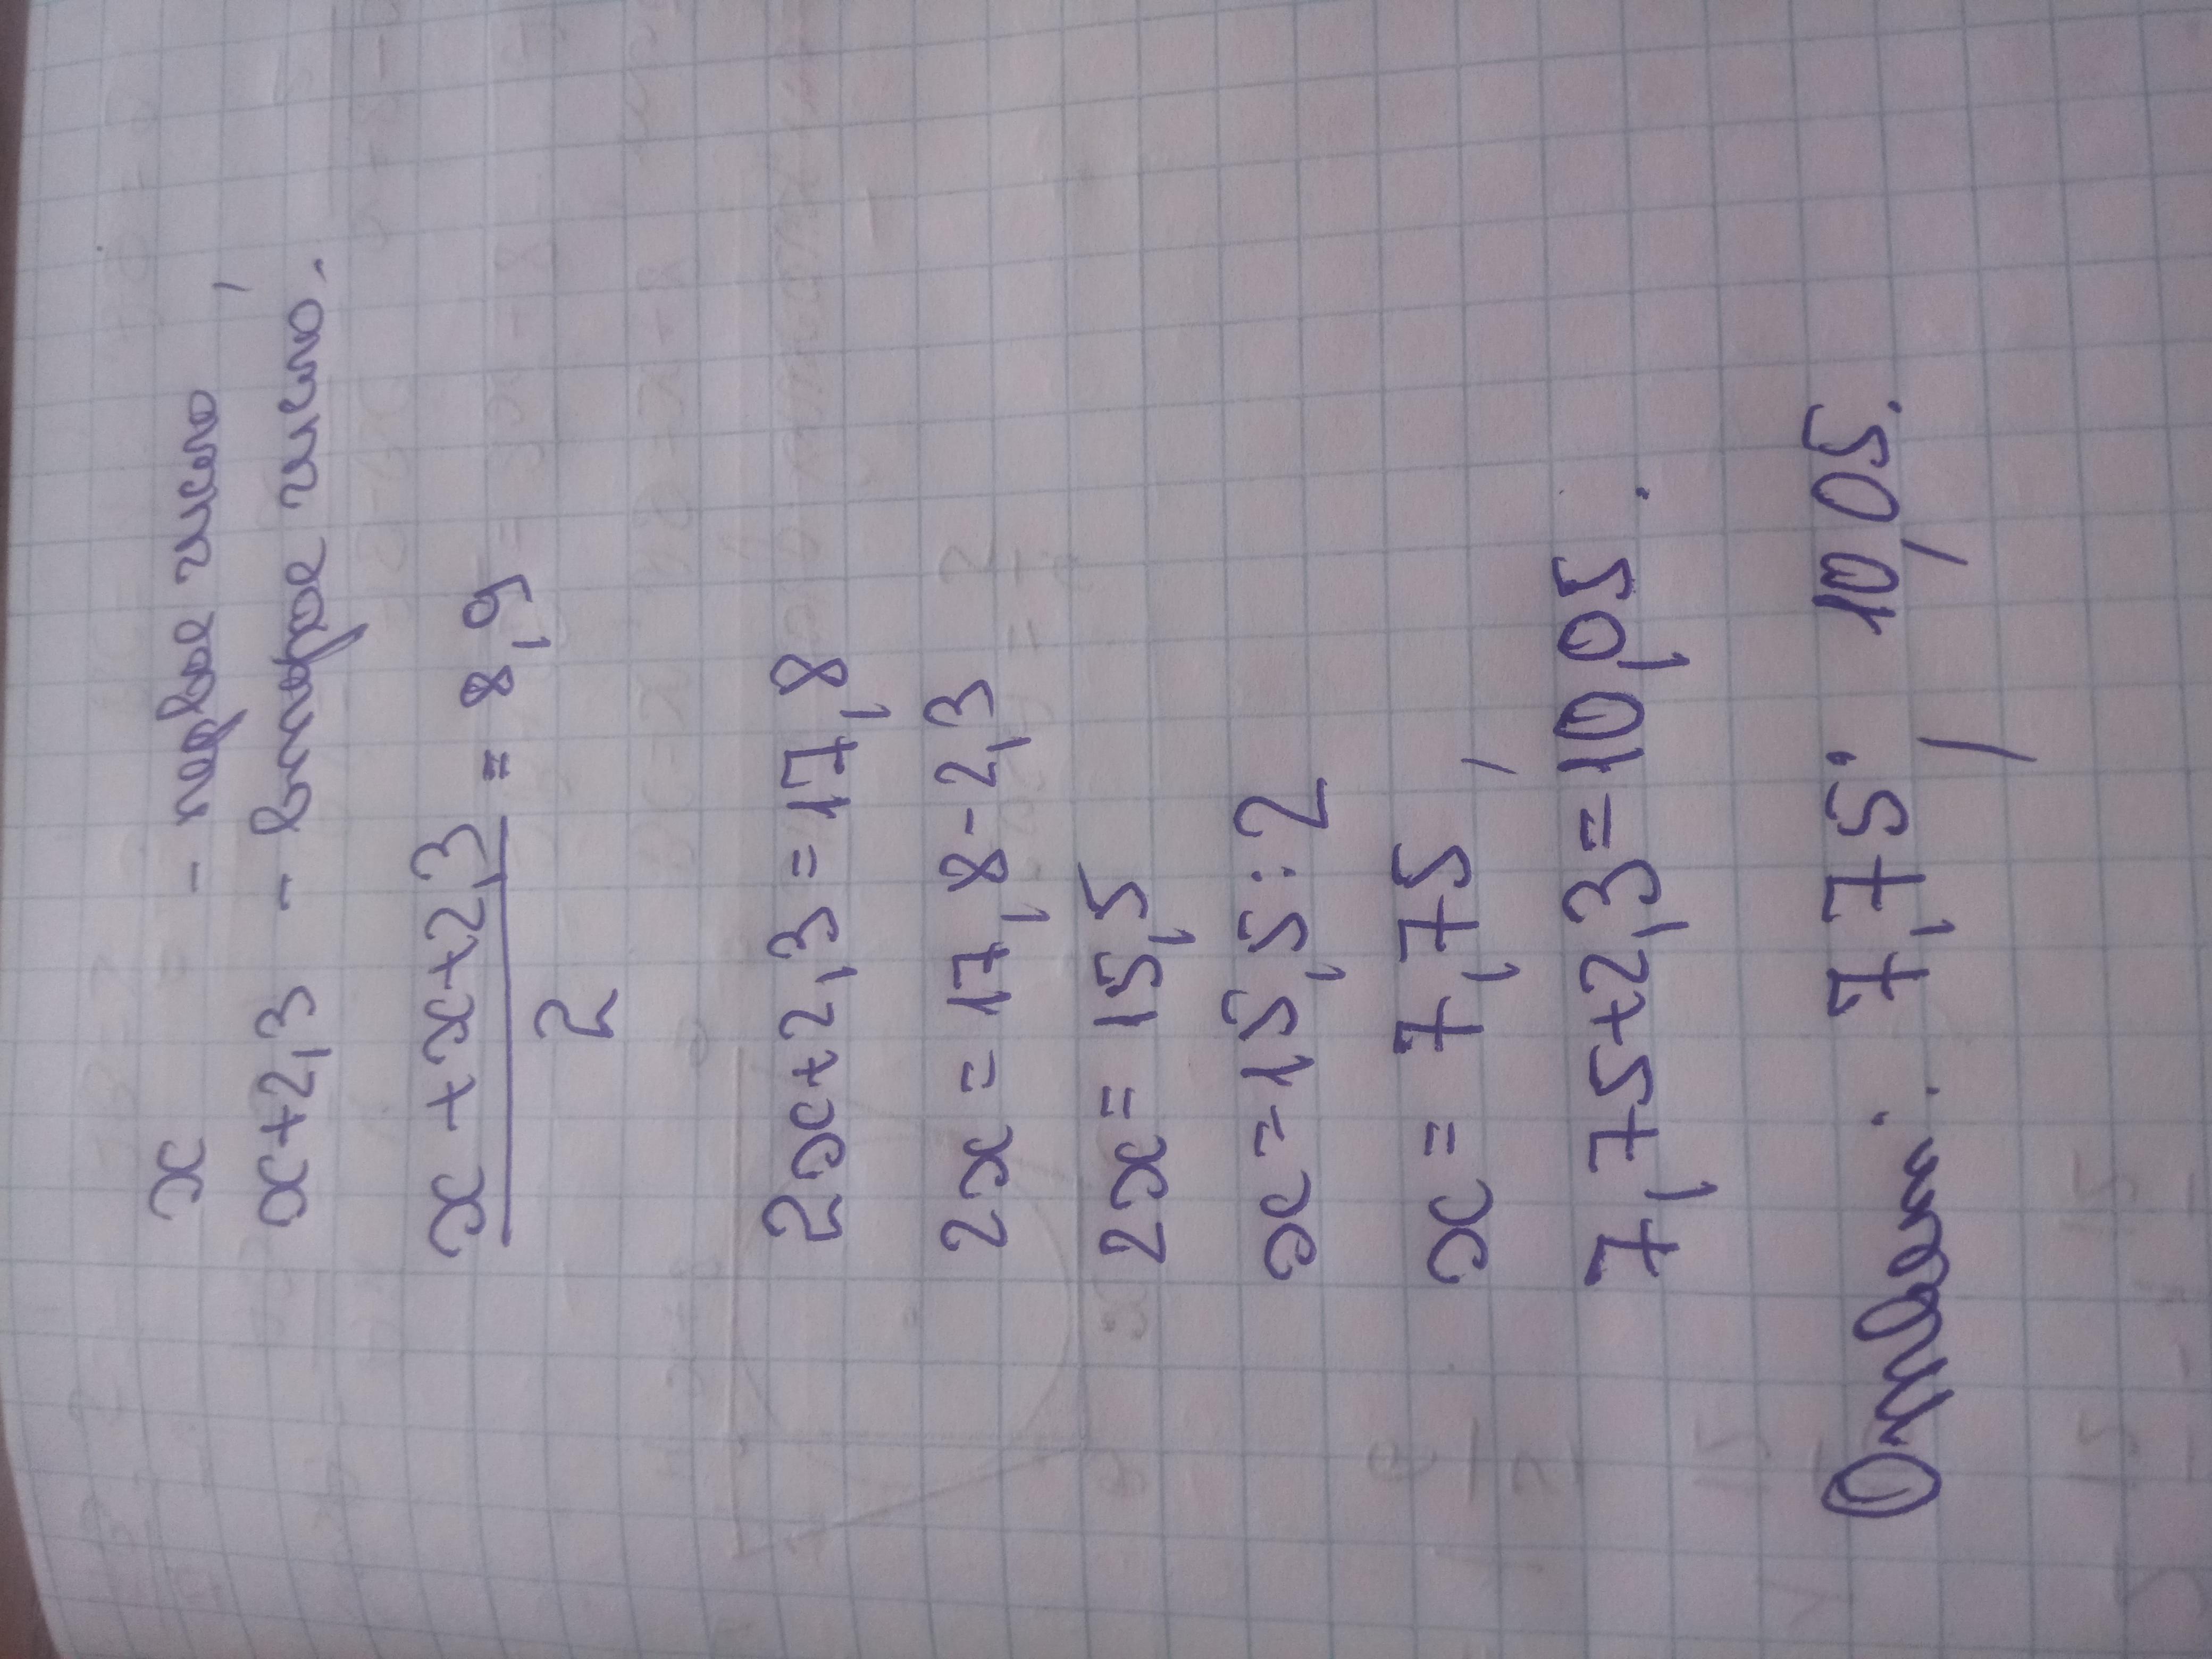 x - первое число,
x+2,3 - второе число.
x + x+2,3 / 2 = 8,9
2x+2,3=17,8
2x = 17,8-2,3
2x= 15,5
x=15,5:2
x= 7,75,
7,75+2,3=10,05.
Ответ: 7,75, 10,05.